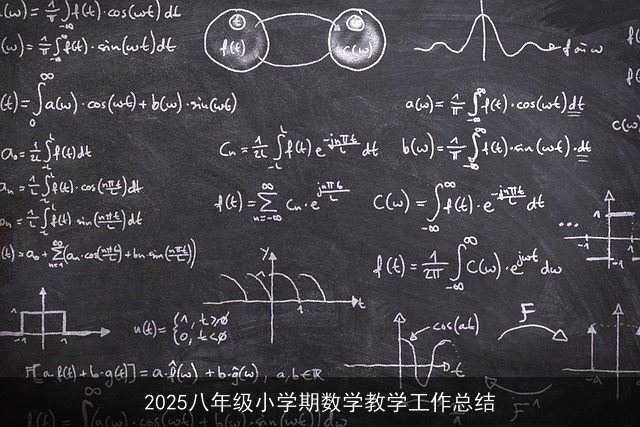 (ω) = 1/π ∫f(t)·cos(ωt) dt
(ω) = 1/π ∫f(t)·sin(ωt) dt
f(t)
c(ω)
(t) = ∫₀^∞ a(ω)·cos(ωt) + b(ω)·sin(ωt)
a(ω) = 1/π ∫_{-∞}^{∞} f(t)·cos(ωt) dt
b(ω) = 1/π ∫_{-∞}^{∞} f(t)·sin(ωt)·dt
a₀ = 1/2L ∫_{-L}^{L} f(t) dt
Cn = 1/2L ∫_{-L}^{L} f(t) e^{-jnπt/L} dt
an = 1/L ∫_{-L}^{L} f(t)·cos(nπt/L) dt
f(t) = ∑_{n=-∞}^{∞} Cn·e^{jnπt/L}
C(ω) = ∫_{-∞}^{∞} f(t)·e^{-jnπt/L} dt
bn = 1/L ∫_{-L}^{L} f(t)·sin(nπt/L) dt
(t) = a₀ + ∑_{n=1}^{∞} (an·cos(nπt/L) + bn·sin(nπt/L))
f(t) = 1/2π ∫_{-∞}^{∞} C(ω)·e^{jωt} dω
y
1
1
t
u(t) = {1, t≥0
0, t<0
cos(at)
t
F
-a
a
F[a·f(t) + b·g(t)] = a·f̂(ω) + b·ĝ(ω), a,b∈ℝ
2025八年级小学期数学教学工作总结